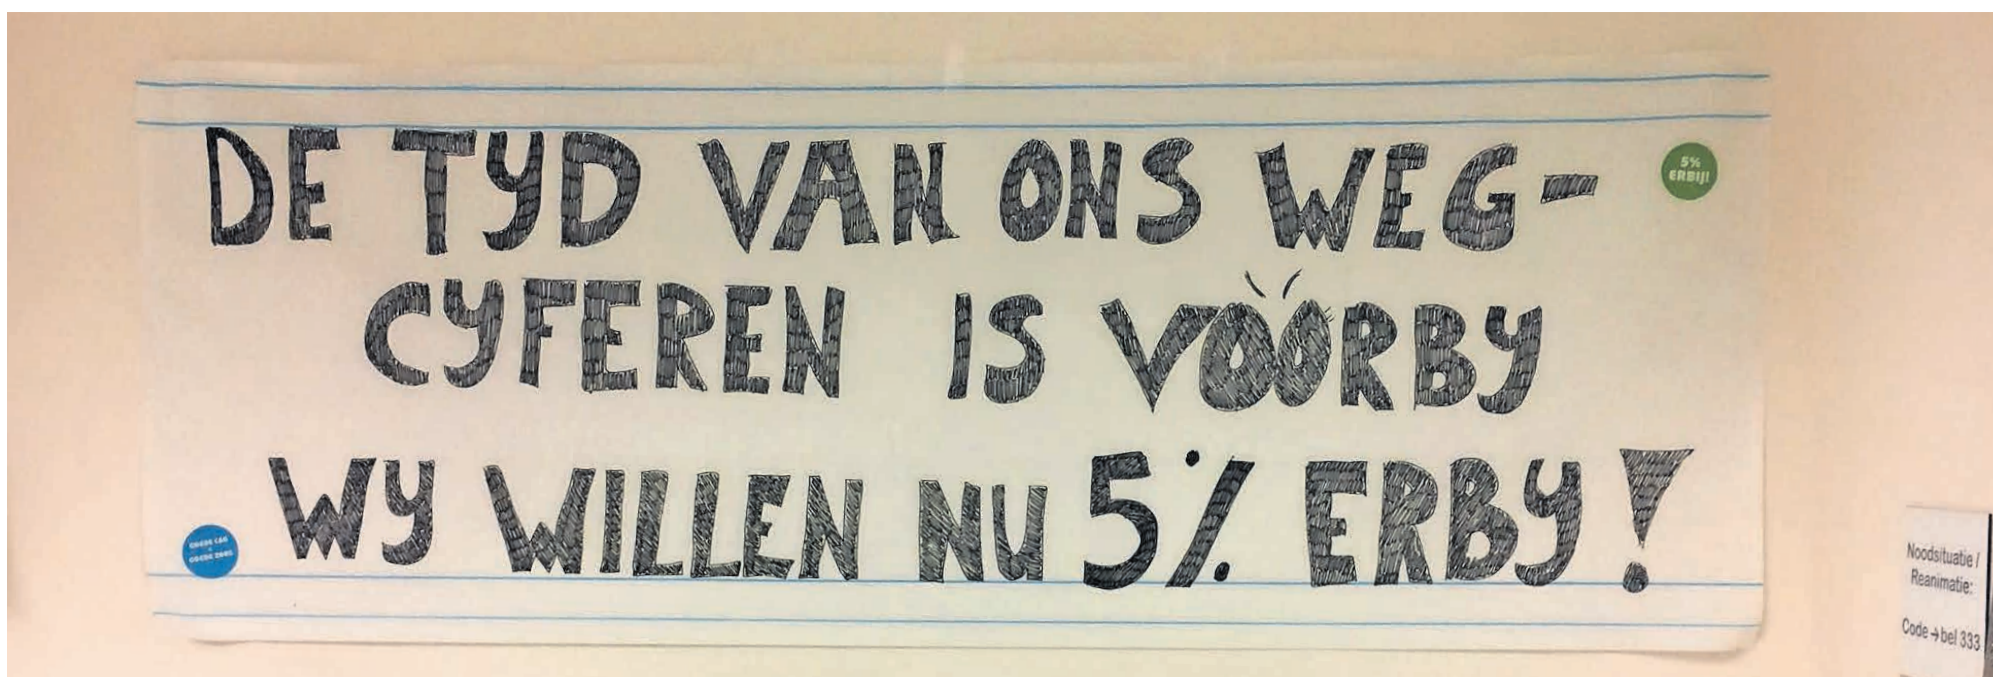 DE TYD VAN ONS WEG-
CYFEREN IS VOORBY
WY WILLEN NU 5% ERBY!
5%
ERBIJ!
GOEDE CAO
=
GOEDE ZORG
Noodsituatie /
Reanimatie:
Code → bel 333